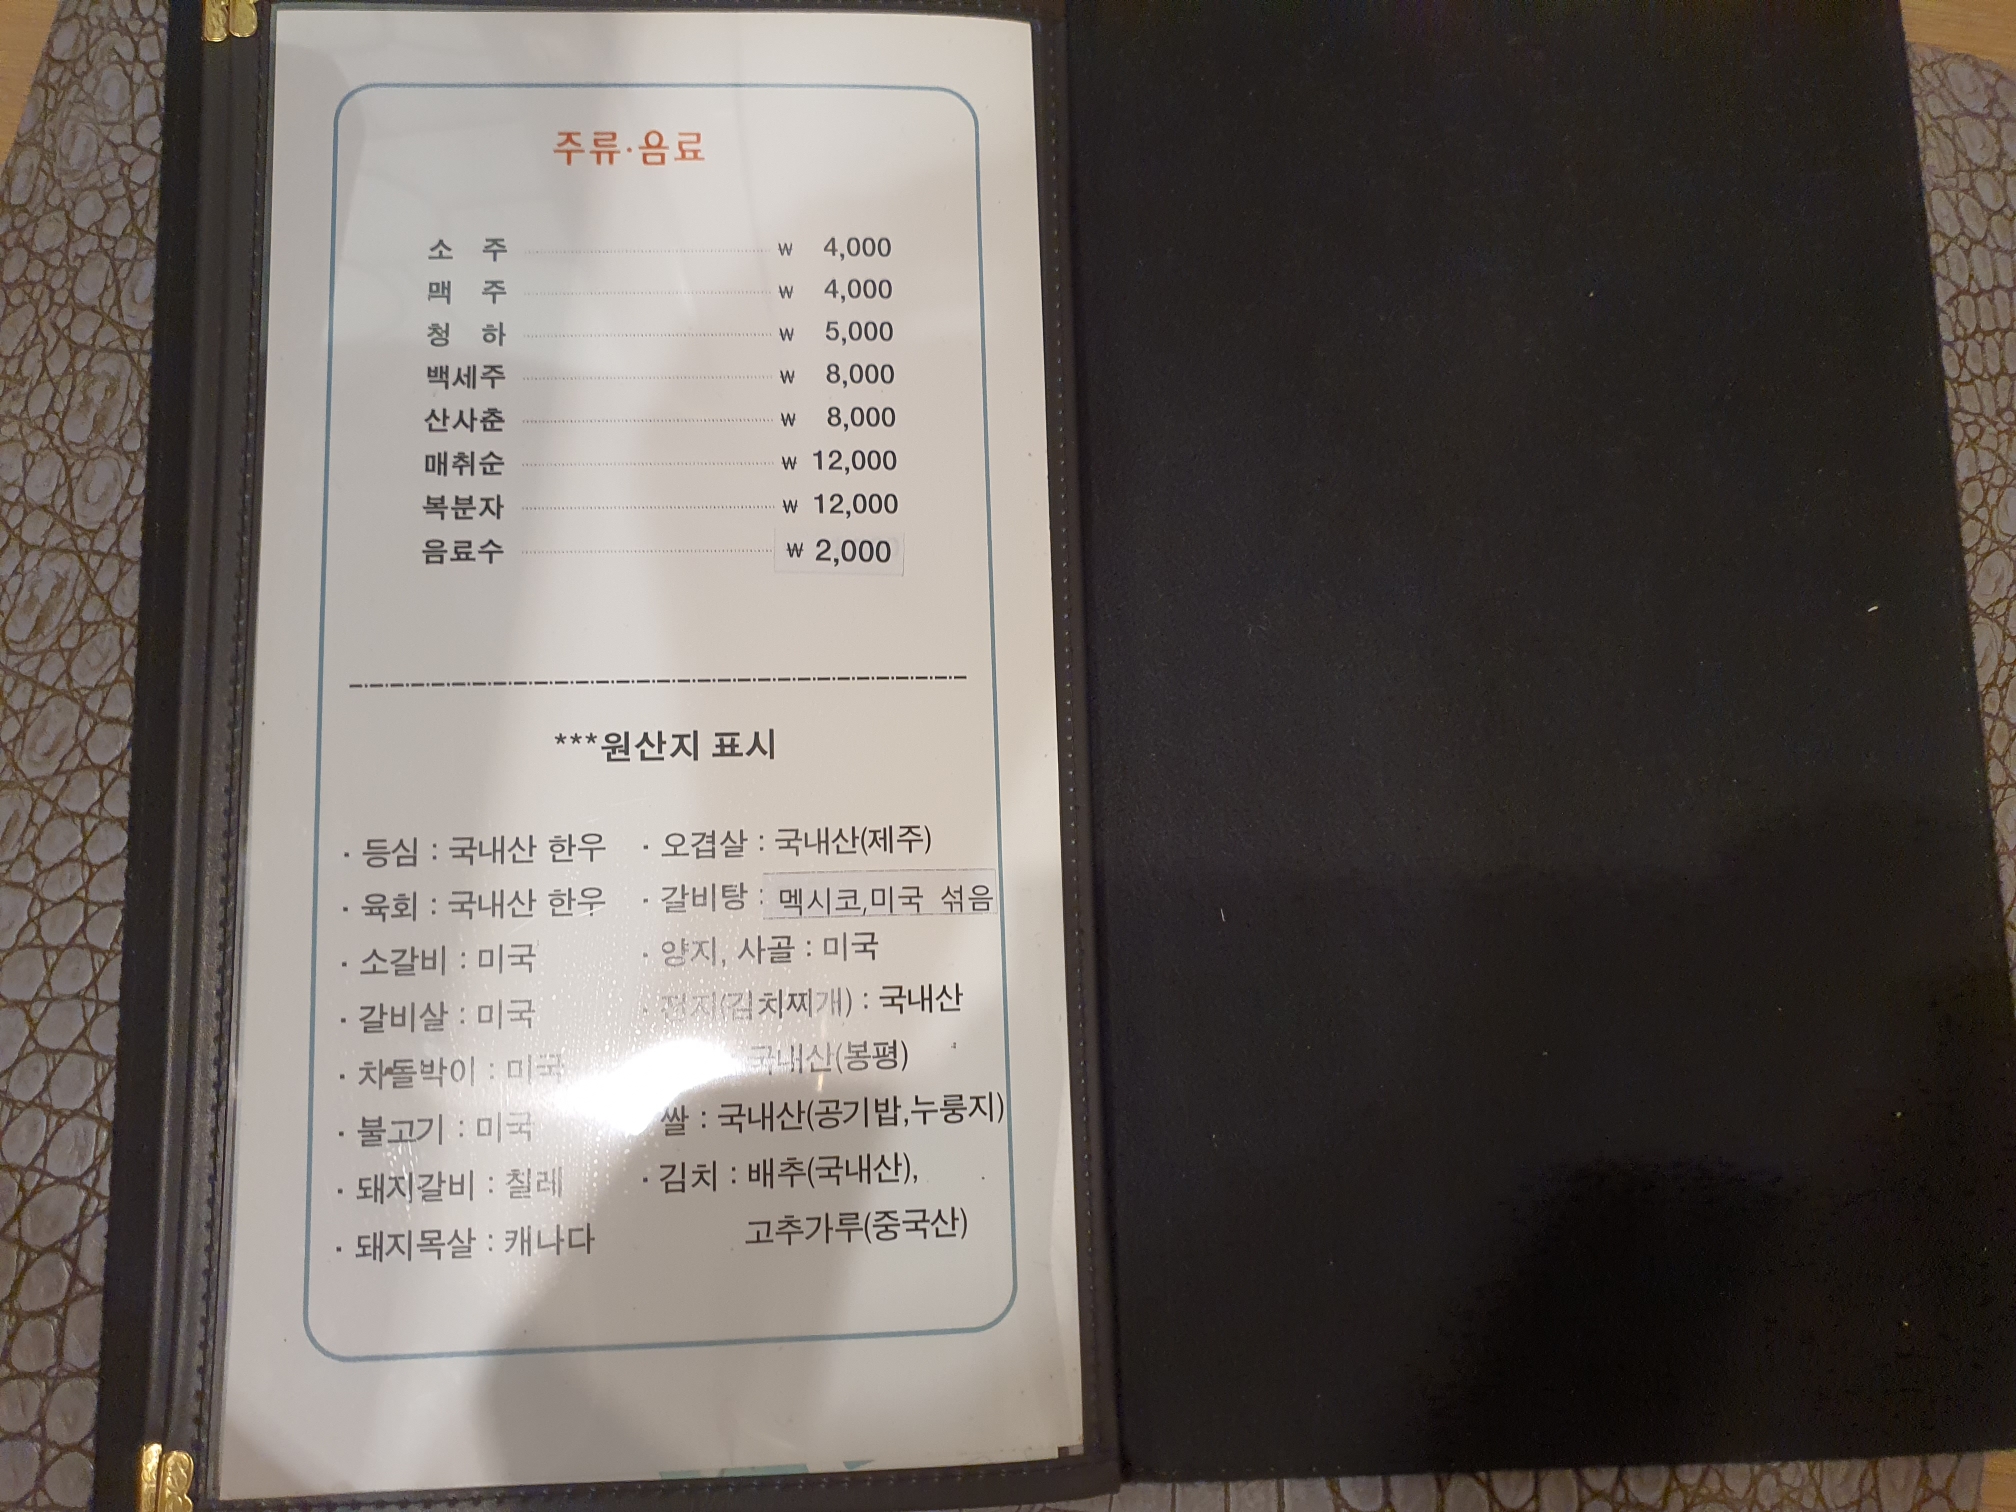 주류·음료
소 주 ₩ 4,000
맥 주 ₩ 4,000
청 하 ₩ 5,000
백세주 ₩ 8,000
산사춘 ₩ 8,000
매취순 ₩ 12,000
복분자 ₩ 12,000
음료수 ₩ 2,000
***원산지 표시
· 등심 : 국내산 한우
· 육회 : 국내산 한우
· 소갈비 : 미국
· 갈비살 : 미국
· 차돌박이 : 미국
· 불고기 : 미국
· 돼지갈비 : 칠레
· 돼지목살 : 캐나다
· 오겹살 : 국내산(제주)
· 갈비탕 : 멕시코,미국 섞음
· 양지, 사골 : 미국
· 전지(김치찌개) : 국내산
국내산(봉평)
쌀 : 국내산(공기밥,누룽지)
· 김치 : 배추(국내산),
고추가루(중국산)